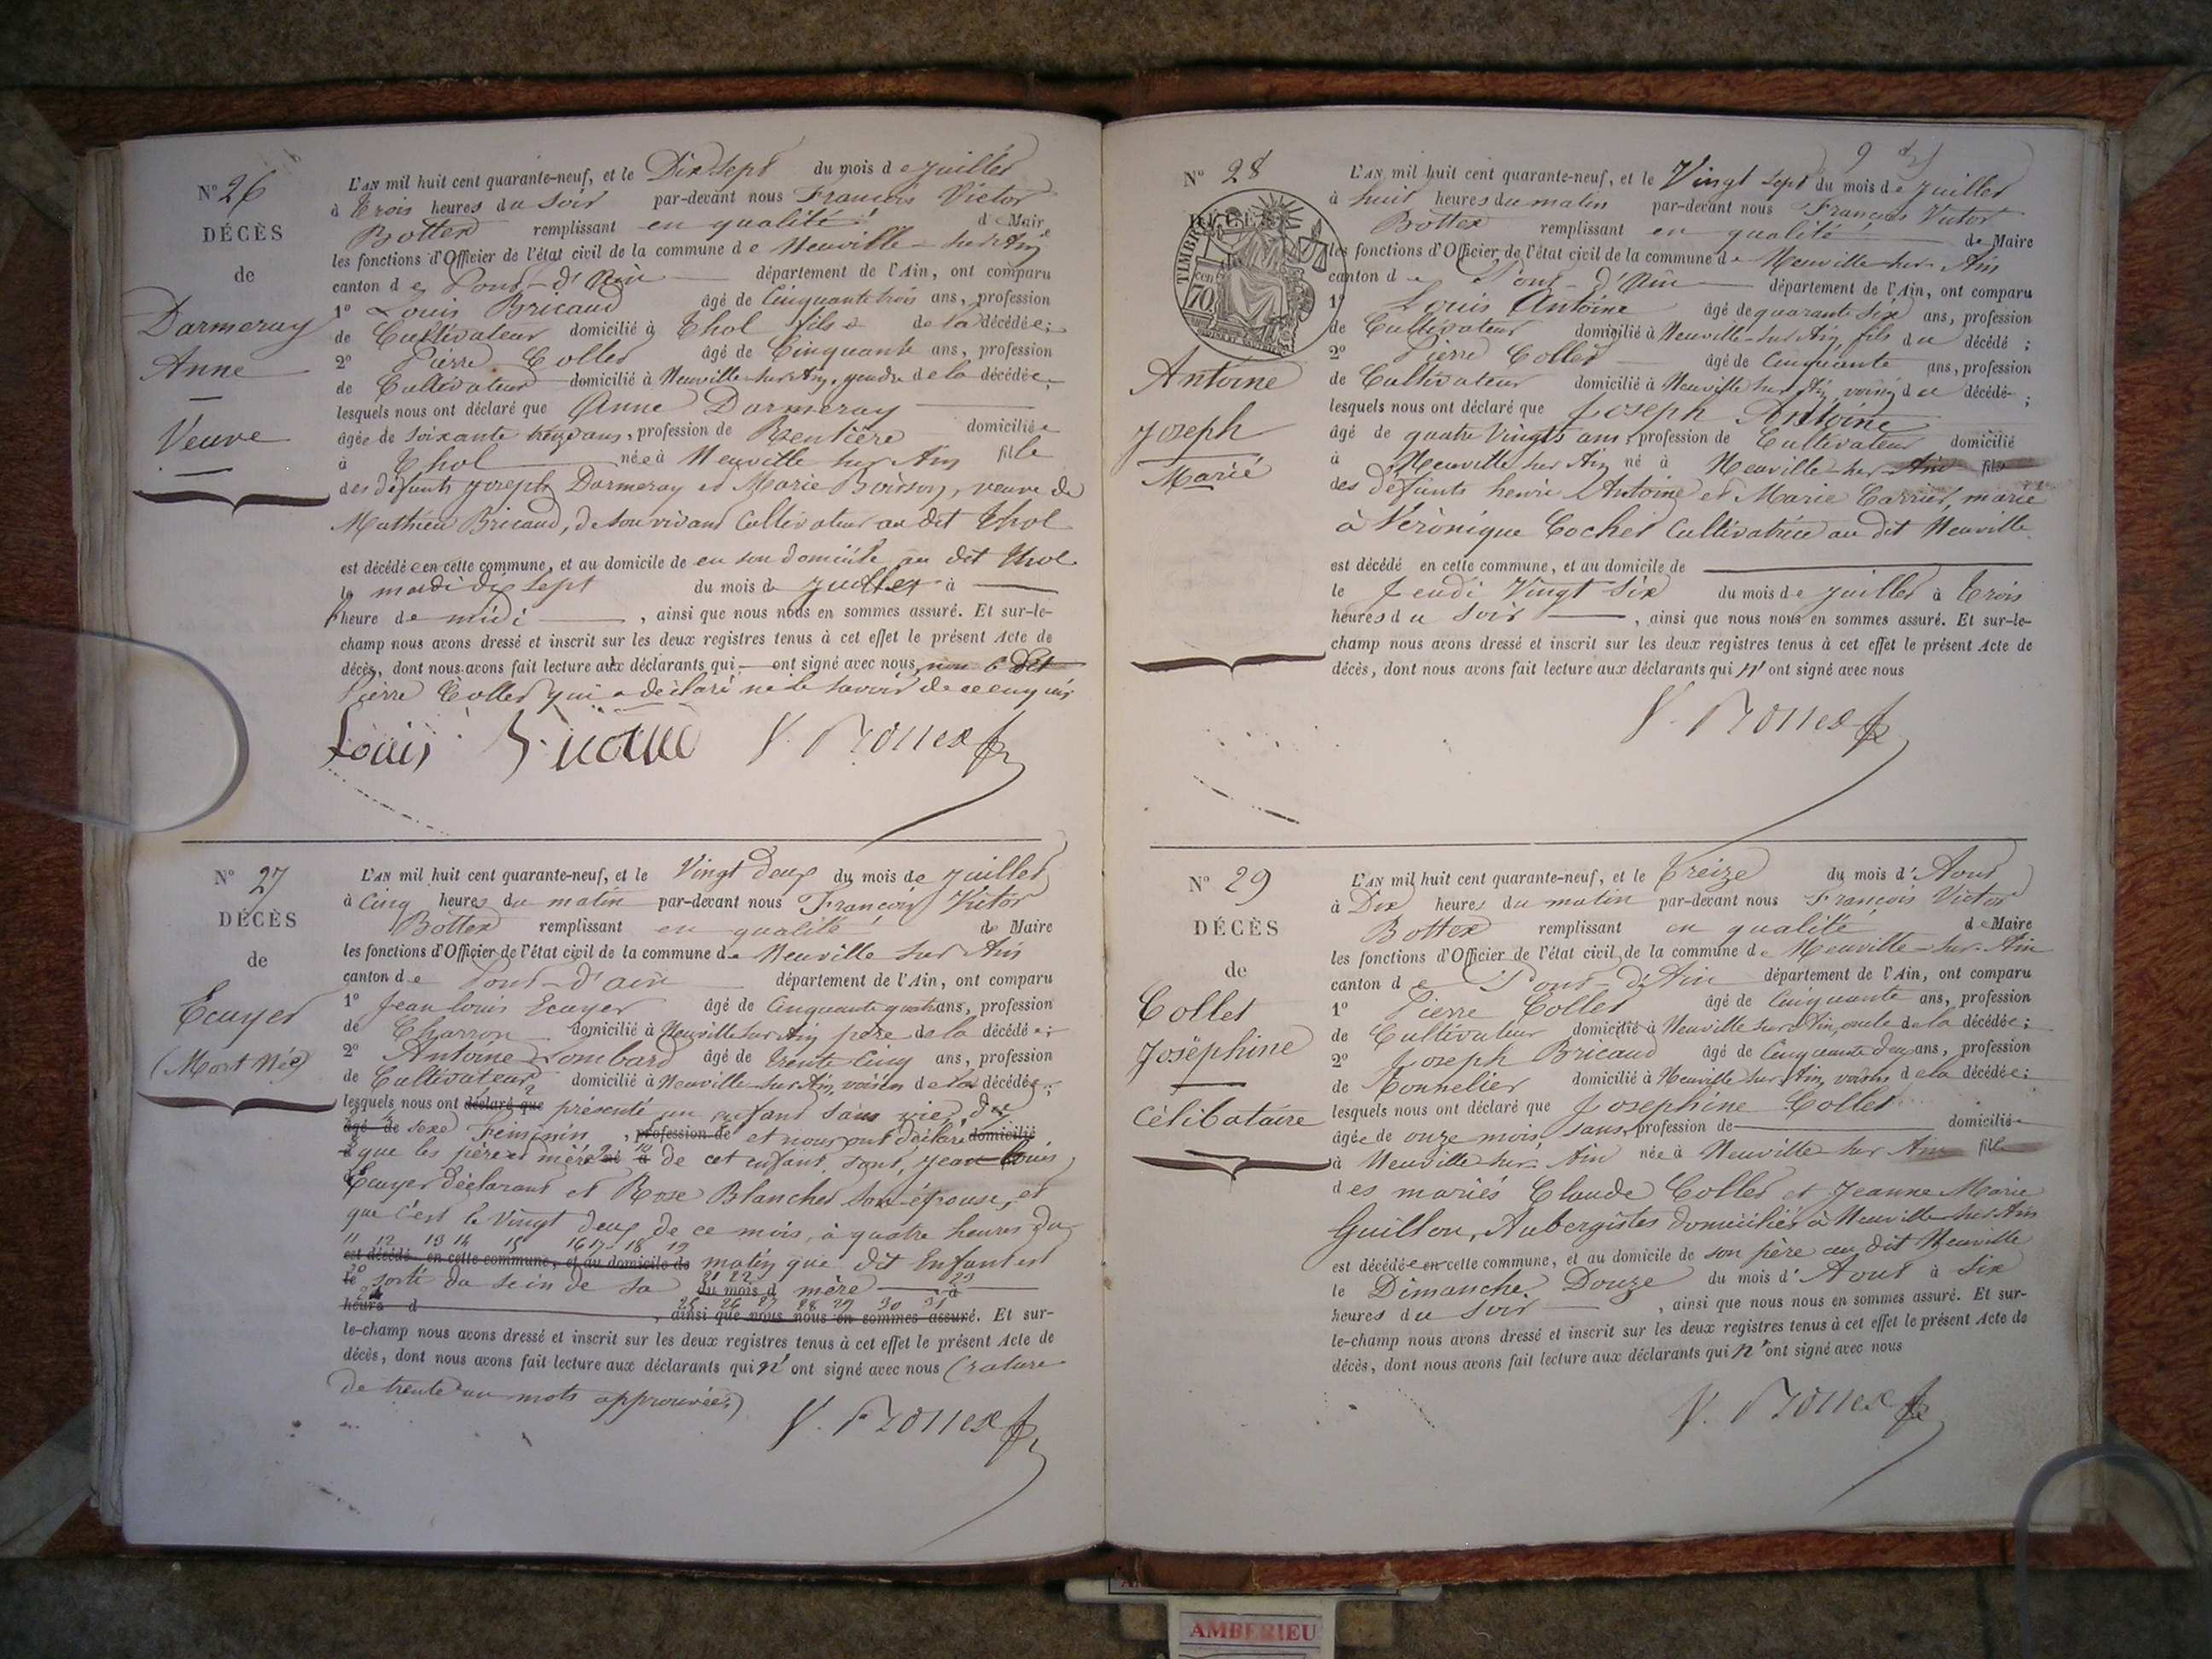 N° 26
DÉCÈS
de
Darmeray
Anne
Veuve
L'AN mil huit cent quarante-neuf, et le Dix sept du mois de juillet
à trois heures du soir par-devant nous François Victor
Bottex remplissant en qualité de Maire
les fonctions d'Officier de l'état civil de la commune de Neuville-sur-Ain
canton de Pont-d'Ain département de l'Ain, ont comparu
1° Louis Bricaud âgé de Cinquante trois ans, profession
de Cultivateur domicilié à Thol fils de la décédée;
2° Pierre Collet âgé de Cinquante ans, profession
de Cultivateur domicilié à Neuville-sur-Ain, gendre de la décédée;
lesquels nous ont déclaré que Anne Darmeray
âgée de soixante treize ans, profession de Rentière domiciliée
à Thol née à Neuville sur Ain fille
des défunts Joseph Darmeray et Marie Boisson, veuve de
Mathieu Bricaud, de son vivant Cultivateur au dit Thol
est décédée en cette commune, et au domicile de en son domicile au dit Thol
le mardi dix sept du mois de juillet à
heure de midi, ainsi que nous nous en sommes assuré. Et sur-le-
champ nous avons dressé et inscrit sur les deux registres tenus à cet effet le présent Acte de
décès, dont nous avons fait lecture aux déclarants qui ont signé avec nous non le dit
Pierre Collet qui a déclaré ne le savoir de ce enquis
Louis Bricaud V. Bottex
N° 27
DÉCÈS
de
Ecuyer
(Mort Née)
L'AN mil huit cent quarante-neuf, et le Vingt deux du mois de juillet
à Cinq heures du matin par-devant nous François Victor
Bottex remplissant en qualité de Maire
les fonctions d'Officier de l'état civil de la commune de Neuville sur Ain
canton de Pont-d'ain département de l'Ain, ont comparu
1° Jean Louis Ecuyer âgé de Cinquante quatre ans, profession
de Charron domicilié à Neuville sur Ain père de la décédée;
2° Antoine Lombard âgé de trente Cinq ans, profession
de Cultivateur domicilié à Neuville-sur-Ain, voisin de la décédée;
lesquels nous ont déclaré que présenté un enfant sans vie du
âgé de sexe Féminin, profession de et nous ont déclaré domicilié
à que les père et mère né à de cet enfant sont, Jean Louis
Ecuyer déclarant et Rose Blanchet son épouse, et
que c'est le Vingt deux de ce mois, à quatre heures du
11 12 13 14 15 16 17 18 19
est décédé en cette commune, et au domicile de matin que dit Enfant est
le sorti du sein de sa du mois d mère à
heure d
25 26 27 28 29 30 31
ainsi que nous nous en sommes assuré. Et sur-
le-champ nous avons dressé et inscrit sur les deux registres tenus à cet effet le présent Acte de
décès, dont nous avons fait lecture aux déclarants qui n'ont signé avec nous (rature
de trente un mots approuvée)
V. Bottex
N° 28
TIMBRE
cen 70
Antoine
Joseph
Marié
L'AN mil huit cent quarante-neuf, et le Vingt sept du mois de juillet
à huit heures du matin par-devant nous François Victor
Bottex remplissant en qualité de Maire
les fonctions d'Officier de l'état civil de la commune de Neuville-sur-Ain
canton de Pont-d'Ain département de l'Ain, ont comparu
1° Louis Antoine âgé de quarante six ans, profession
de Cultivateur domicilié à Neuville-sur-Ain, fils du décédé;
2° Pierre Collet âgé de Cinquante ans, profession
de Cultivateur domicilié à Neuville sur Ain, voisin du décédé;
lesquels nous ont déclaré que Joseph Antoine
âgé de quatre Vingts ans, profession de Cultivateur domicilié
à Neuville sur Ain né à Neuville-sur-Ain fils
des défunts henri Antoine et Marie Carrier, marié
à Véronique Cochet Cultivatrice au dit Neuville
est décédé en cette commune, et au domicile de
le Jeudi Vingt Six du mois de juillet à trois
heures du soir, ainsi que nous nous en sommes assuré. Et sur-le-
champ nous avons dressé et inscrit sur les deux registres tenus à cet effet le présent Acte de
décès, dont nous avons fait lecture aux déclarants qui n'ont signé avec nous
V. Bottex
N° 29
DÉCÈS
de
Collet
Joséphine
Célibataire
L'AN mil huit cent quarante-neuf, et le treize du mois d'Aout
à Dix heures du matin par-devant nous François Victor
Bottex remplissant en qualité de Maire
les fonctions d'Officier de l'état civil de la commune de Neuville-sur-Ain
canton de Pont-d'Ain département de l'Ain, ont comparu
1° Pierre Collet âgé de Cinquante ans, profession
de Cultivateur domicilié à Neuville sur Ain, oncle de la décédée;
2° Joseph Bricaud âgé de Cinquante deux ans, profession
de Tonnelier domicilié à Neuville sur Ain, voisin de la décédée;
lesquels nous ont déclaré que Josephine Collet
âgée de onze mois, sans profession de domiciliée
à Neuville-sur-Ain née à Neuville-sur Ain fille
des mariés Claude Collet et Jeanne Marie
Guillon, Aubergistes domiciliés à Neuville-sur-Ain
est décédée en cette commune, et au domicile de son père au dit Neuville
le Dimanche Douze du mois d'Aout à six
heures du soir, ainsi que nous nous en sommes assuré. Et sur-
le-champ nous avons dressé et inscrit sur les deux registres tenus à cet effet le présent Acte de
décès, dont nous avons fait lecture aux déclarants qui n'ont signé avec nous
V. Bottex
AMBERIEU